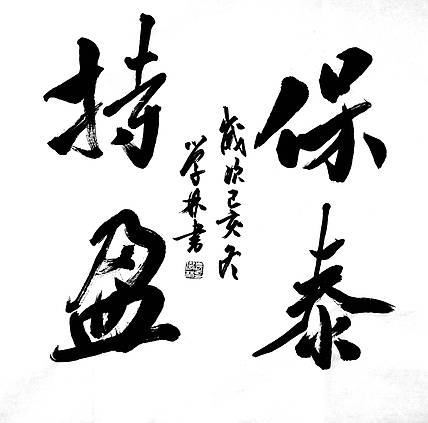 保泰
持盈
歲次己亥冬
學林書